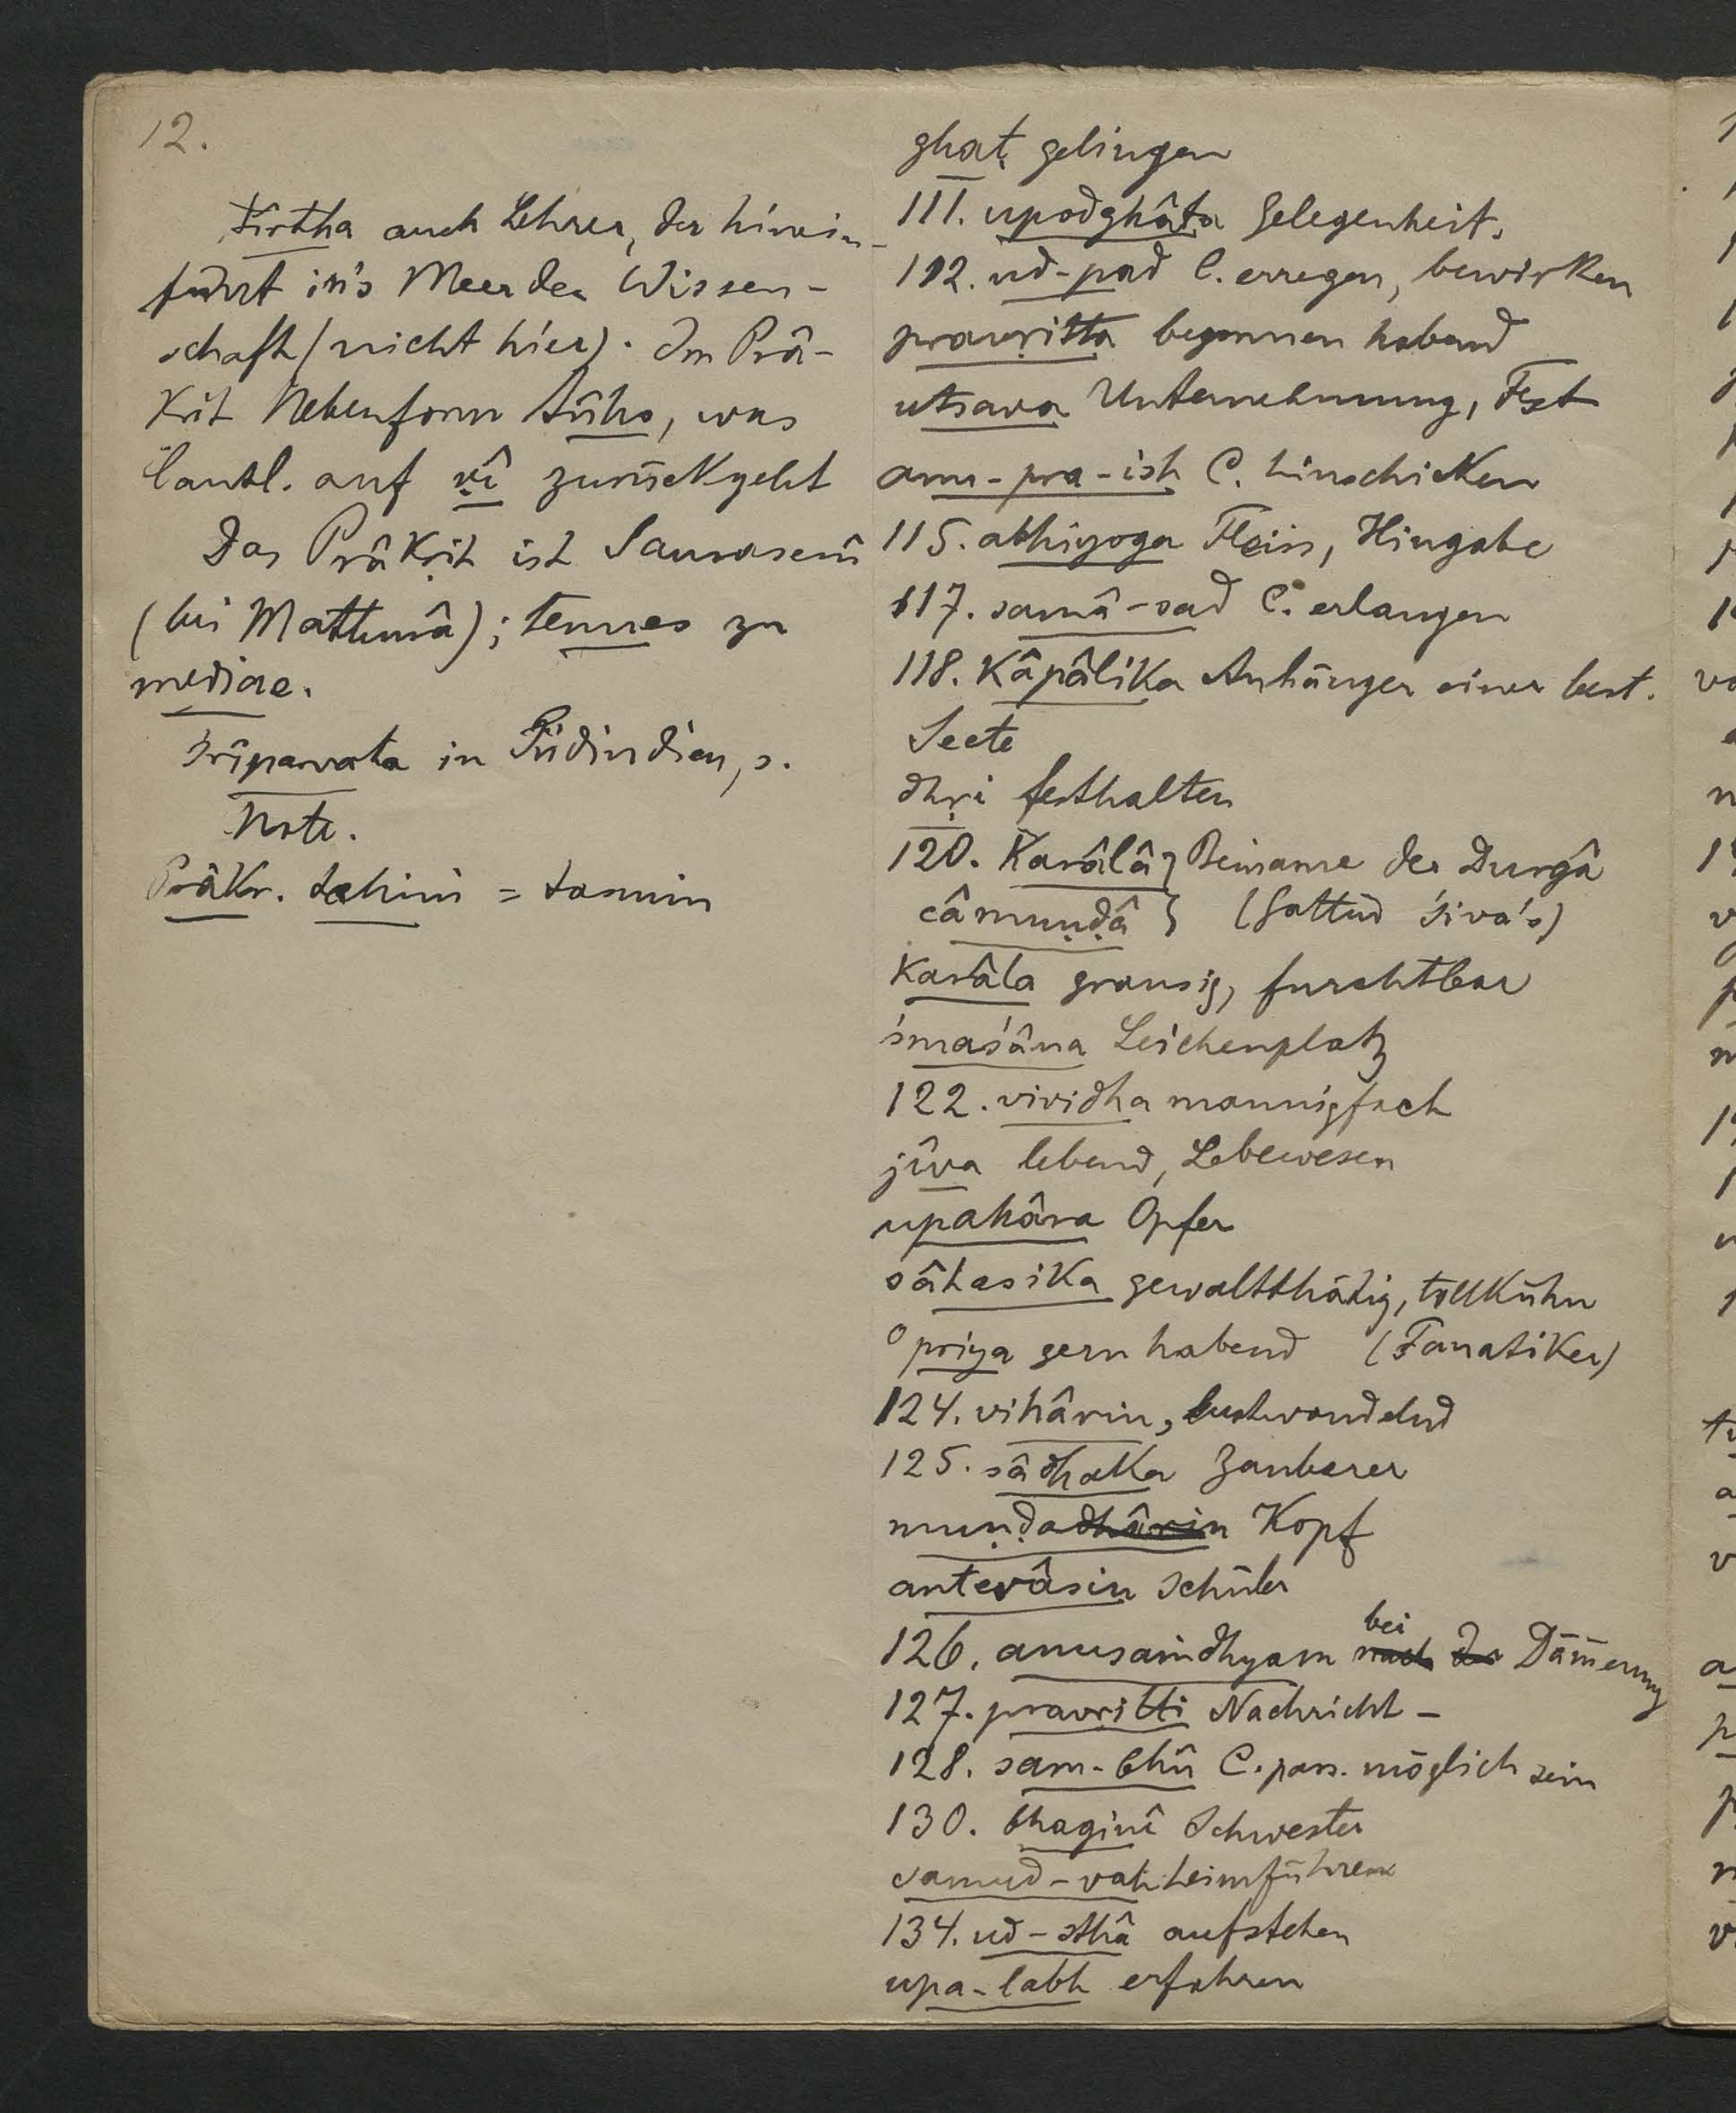 12.
tîrtha auch Lehrer, der hinein-
führt in's Meer der Wissen-
schaft (nicht hier). Im Prâ-
krit Nebenform tûha, was
lautl. auf ṛî zurückgeht
Das Prâkṛit ist Saurasenî
(bei Mathurâ); tenues zu
mediae.
Śrîparvata in Südindien, s.
Note.
Prâkr. tahim = tasmin
ghaṭ gelingen
111. upodghâta Gelegenheit.
112. ud-pad C. erregen, bewirken
pravṛitta begonnen habend
utsava Unternehmung, Fest
anu-pra-ish C. hinschicken
115. abhiyoga Fleiss, Hingabe
117. samâ-sad C. erlangen
118. Kâpâlika Anhänger einer best.
Secte
dhṛi festhalten
120. Karâlâ } Beiname der Durgâ
câmuṇḍâ } (Gattin Śiva's)
karâla grausig, furchtbar
śmaśâna Leichenplatz
122. vividha mannigfach
jîva lebend, Lebewesen
upahâra Opfer
sâhasika gewaltthätig, tollkühn
°priya gern habend (Fanatiker)
124. vihârin, lustwandelnd
125. sâdhaka Zauberer
muṇḍadhârin Kopf
antevâsin Schüler
126. anusaṃdhyam nach der bei Dämerung
127. pravṛitti Nachricht -
128. sam-bhû C. pass. möglich sein
130. bhaginî Schwester
samud-vah heimführen
134. ud-sthâ aufstehen
upa-labh erfahren